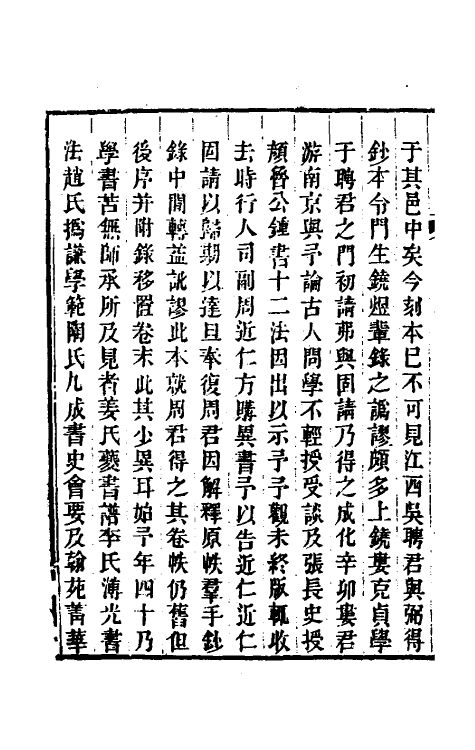 于其邑中矣今刻本已不可見江西吳聘君與弼得
鈔本令門生鐃煜輩錄之譌謬頗多上饒婁克貞學
于聘君之門初請弗與固請乃得之成化辛卯婁君
游南京與予論古人問學不輕授受談及張長史授
顏魯公鍾書十二法因出以示予予觀未終版輒收
去時行人司副周近仁方購異書予以告近仁近仁
因請以歸期以達旦奉復周君因解釋原帙羣手鈔
錄中間轉益訛謬此本就周君得之其卷帙仍舊但
後序并附錄移置卷末此其少異耳始予年四十乃
學書苦無師承所及見者姜氏夔書譜李氏溥光書
法趙氏撝謙學範陶氏九成書史會要及翰苑菁華